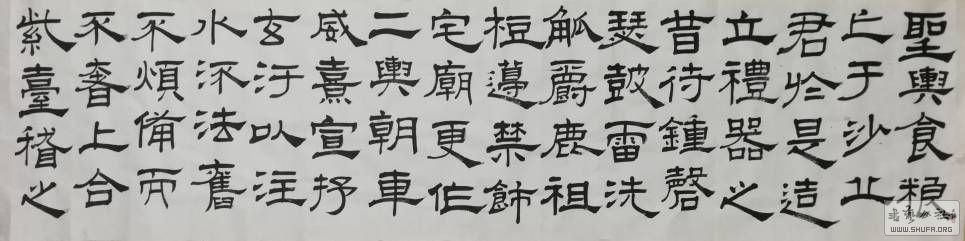 聖輿食粮
亡于沙丘
君於是造
立禮器之
昔待鍾磬
瑟鼓雷洗
觚爵鹿祖
梪籩禁飾
宅廟更作
二輿朝車
威熹宣抒
玄汙以注
水流法舊
不煩備而
不奢上合
紫臺稽之
WWW.SHUFA.ORG